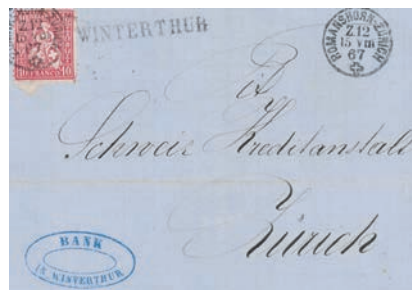 WINTERTHUR
10 FRANCO 10
ROMANSHORN-ZÜRICH
Z.12
15 VIII
67
Schweiz Kreditanstalt
Zürich
BANK
WINTERTHUR